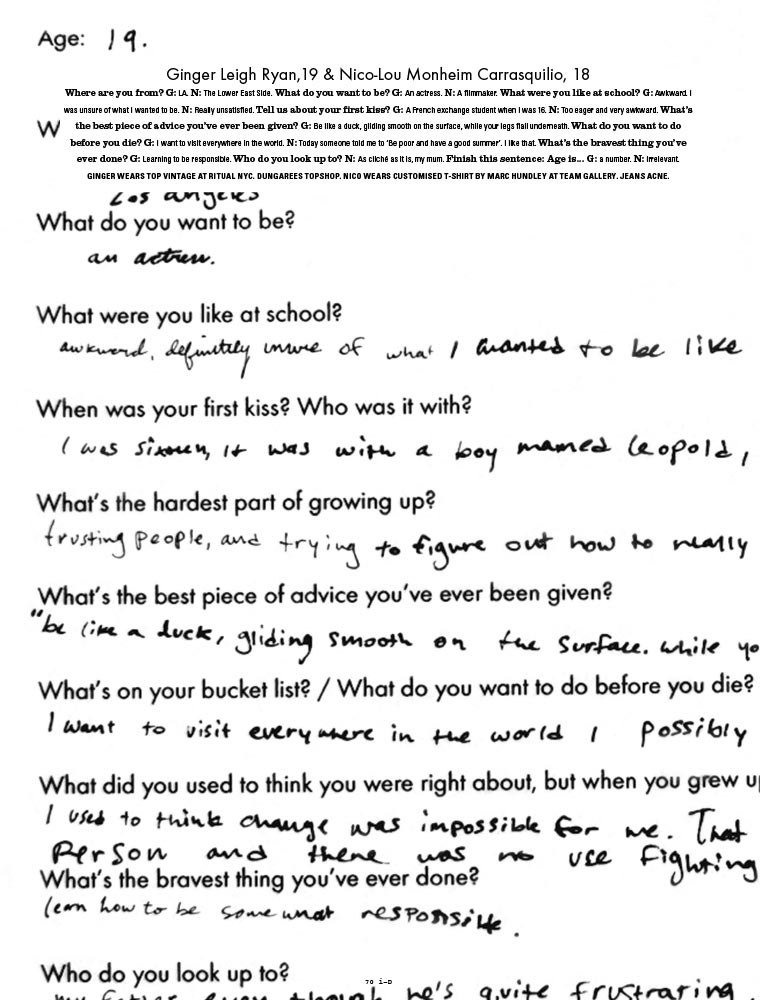 Age: 19.
Ginger Leigh Ryan,19 & Nico-Lou Monheim Carrasquilio, 18
Where are you from? G: LA. N: The Lower East Side. What do you want to be? G: An actress. N: A filmmaker. What were you like at school? G: Awkward. I
was unsure of what I wanted to be. N: Really unsatisfied. Tell us about your first kiss? G: A French exchange student when I was 16. N: Too eager and very awkward. What's
W the best piece of advice you've ever been given? G: Be like a duck, gliding smooth on the surface, while your legs flail underneath. What do you want to do
before you die? G: I want to visit everywhere in the world. N: Today someone told me to 'Be poor and have a good summer'. I like that. What's the bravest thing you've
ever done? G: Learning to be responsible. Who do you look up to? N: As cliché as it is, my mum. Finish this sentence: Age is... G: a number. N: Irrelevant.
GINGER WEARS TOP VINTAGE AT RITUAL NYC. DUNGAREES TOPSHOP. NICO WEARS CUSTOMISED T-SHIRT BY MARC HUNDLEY AT TEAM GALLERY. JEANS ACNE.
Los angeles
What do you want to be?
an actress.
What were you like at school?
awkward, definitely unsure of what I wanted to be like
When was your first kiss? Who was it with?
I was sixteen, it was with a boy named leopold,
What's the hardest part of growing up?
trusting people, and trying to figure out how to really
What's the best piece of advice you've ever been given?
"be like a duck, gliding smooth on the surface. while yo
What's on your bucket list? / What do you want to do before you die?
I want to visit everywhere in the world I possibly
What did you used to think you were right about, but when you grew up
I used to think change was impossible for me. That
Person and there was no use fighting
What's the bravest thing you've ever done?
learn how to be somewhat responsible.
Who do you look up to?
70 i-D
my father even though he's quite frustrating